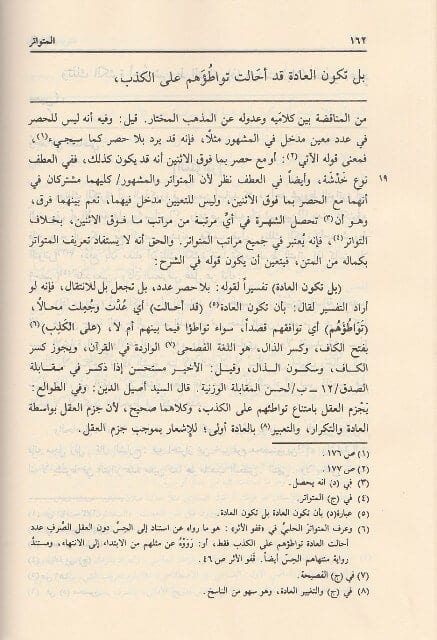 ١٦٢ المتواتر
بل تكون العادة قد أحالت تواطُؤَهم على الكذب،
من المناقضة بين كلاميه وعدوله عن المذهب المختار. قيل: وفيه أنه ليس للحصر
في عدد معين مدخل في المشهور مثلًا، فإنه قد يرد بلا حصر كما سيجيء(١)،
فمعنى قوله الآتي(٢): أو مع حصر بما فوق الاثنين أنه قد يكون كذلك، ففي العطف
نوع خَدْشة، وأيضاً في العطف نظر لأن المتواتر والمشهور/ كليهما مشتركان في ١٩
أنهما مع الحصر بما فوق الاثنين، وليس للتعيين مدخل فيهما، نعم بينهما فرق،
وهو أن(٣) تحصل الشهرة في أيِّ مرتبة من مراتب ما فوق الاثنين، بخلاف
التواتر(٤)، فإنه يُعتبر في جميع مراتب المتواتر. والحق أنه لا يستفاد تعريف المتواتر
بكماله من المتن، فيتعين أن يكون قوله في الشرح:
(بل تكون العادة) تفسيراً لقوله: بلا حصر عدد، بل تجعل بل للانتقال، فإنه لو
أراد التفسير لقال: بأن تكون العادة(٥) (قد أحالت) أي عُدَّت وجُعلت محالًا،
(تَوَاطُؤَهُم) أي توافقهم قصداً، سواء تواطؤا فيما بينهم أم لا، (على الكَذِب)(٦)
بفتح الكاف، وكسر الذال، هو اللغة الفصحى(٧) الواردة في القرآن، ويجوز كسر
الكاف، وسكون الذال، وقيل: الأخير مستحسن إذا ذكر في مقابلة
الصدق/١٢ - ب/لحسن المقابلة الوزنية. قال السيد أصيل الدين: وفي الطوالع:
يَجْزم العقل بامتناع تواطئهم على الكذب، وكلاهما صحيح، لأن جزم العقل بواسطة
العادة والتكرار، والتعبير(٨) بالعادة أولى؛ للإشعار بموجب جزم العقل.
(١) ص ١٧٦.
(٢) ص ١٧٧.
(٣) في (د) انه يحصل.
(٤) في (ج) المتواتر.
(٥) عبارة(د) بأن تكون العادة بل تكون العادة.
(٦) وعرف المتواترَ الحلبيُّ في «قفو الأثر» : هو ما رواه عن استناد إلى الحِسِّ دون العقل الصِّرفِ عدد
أحالت العادة تواطُؤهم على الكذب فقط، أو: رَوَوْهُ عن مثلهم من الابتداء إلى الانتهاء، ومستنَدُ
رواية منتهاهم الحِسّ أيضاً. قَفو الأثر ص ٤٦.
(٧) في (ج) الفصيحة.
(٨) في (ج) والتغيير العادة، وهو سهو من الناسخ.